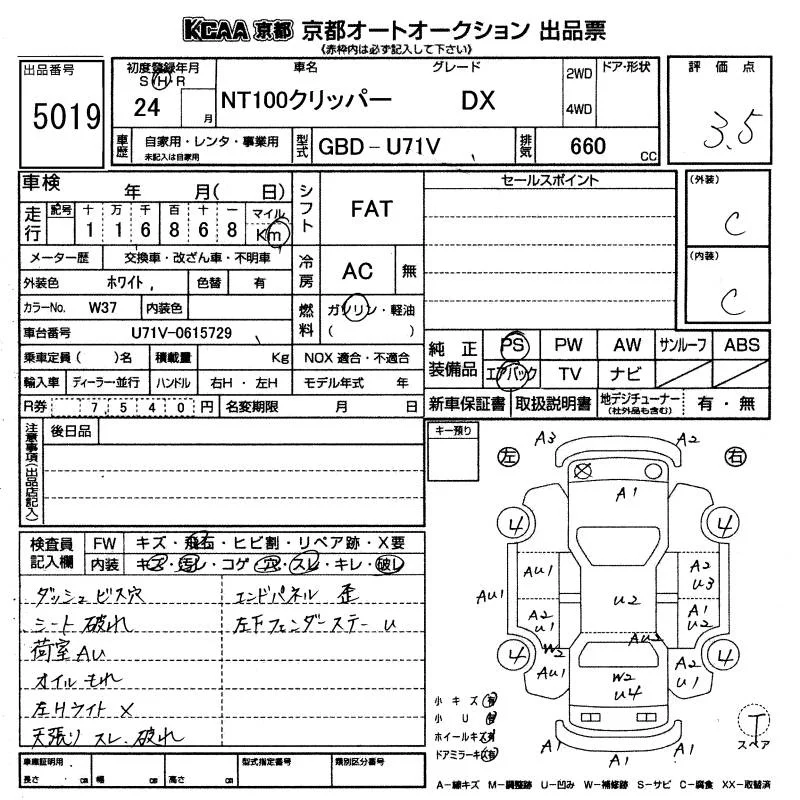 KCAA 京都 京都オートオークション 出品票
《赤枠内は必ず記入して下さい》
出品番号
5019
初度登録年月
S H R
24 月
車名
NT100クリッパー
グレード
DX
2WD
4WD
ドア・形状
評価点
3.5
車歴
自家用・レンタ・事業用
未記入は自家用
型式
GBD-U71V
排気
660 CC
車検
年 月( 日)
シフト
FAT
セールスポイント
(外装)
C
(内装)
C
走行
記号 十 万 千 百 十 一 マイル
1 1 6 8 6 8 Km
メーター歴 交換車・改ざん車・不明車
冷房
AC 無
外装色 ホワイト 色替 有
カラーNo. W37 内装色
燃料
ガソリン・軽油
( )
車台番号 U71V-0615729
乗車定員( )名 積載量 Kg NOX 適合・不適合
輸入車 ディーラー・並行 ハンドル 右H・左H モデル年式 年
R券 7,540円 名変期限 月 日
純正装備品
PS PW AW サンルーフ ABS
エアバック TV ナビ
新車保証書 取扱説明書 地デジチューナー(社外品も含む) 有・無
注意事項(出品店記入)
後日品
キー預り
検査員記入欄
FW キズ・飛石・ヒビ割・リペア跡・X要
内装 キズ・汚レ・コゲ・穴・スレ・キレ・破レ
ダッシュビス穴 エンドパネル 歪
シート 破れ 左下フェンダーステー U
荷室AU
オイルもれ
左Hライト X
天張り スレ. 破れ
左 右
A3 A2
A1
4 4
AU1 A2 U3
AU1
U2
A2 U1 A1 U2
AU2
W2
4 4
AU1 W2 U4 A2 U1
A1 A1
A1
小キズ 有
小U 有
ホイールキズ 有
ドアミラーキズ 有
T
スペア
車庫証明用 型式指定番号 類別区分番号
長さ cm 幅 cm 高さ cm
A-線キズ M-調整跡 U-凹み W-補修跡 S-サビ C-腐食 XX-取替済